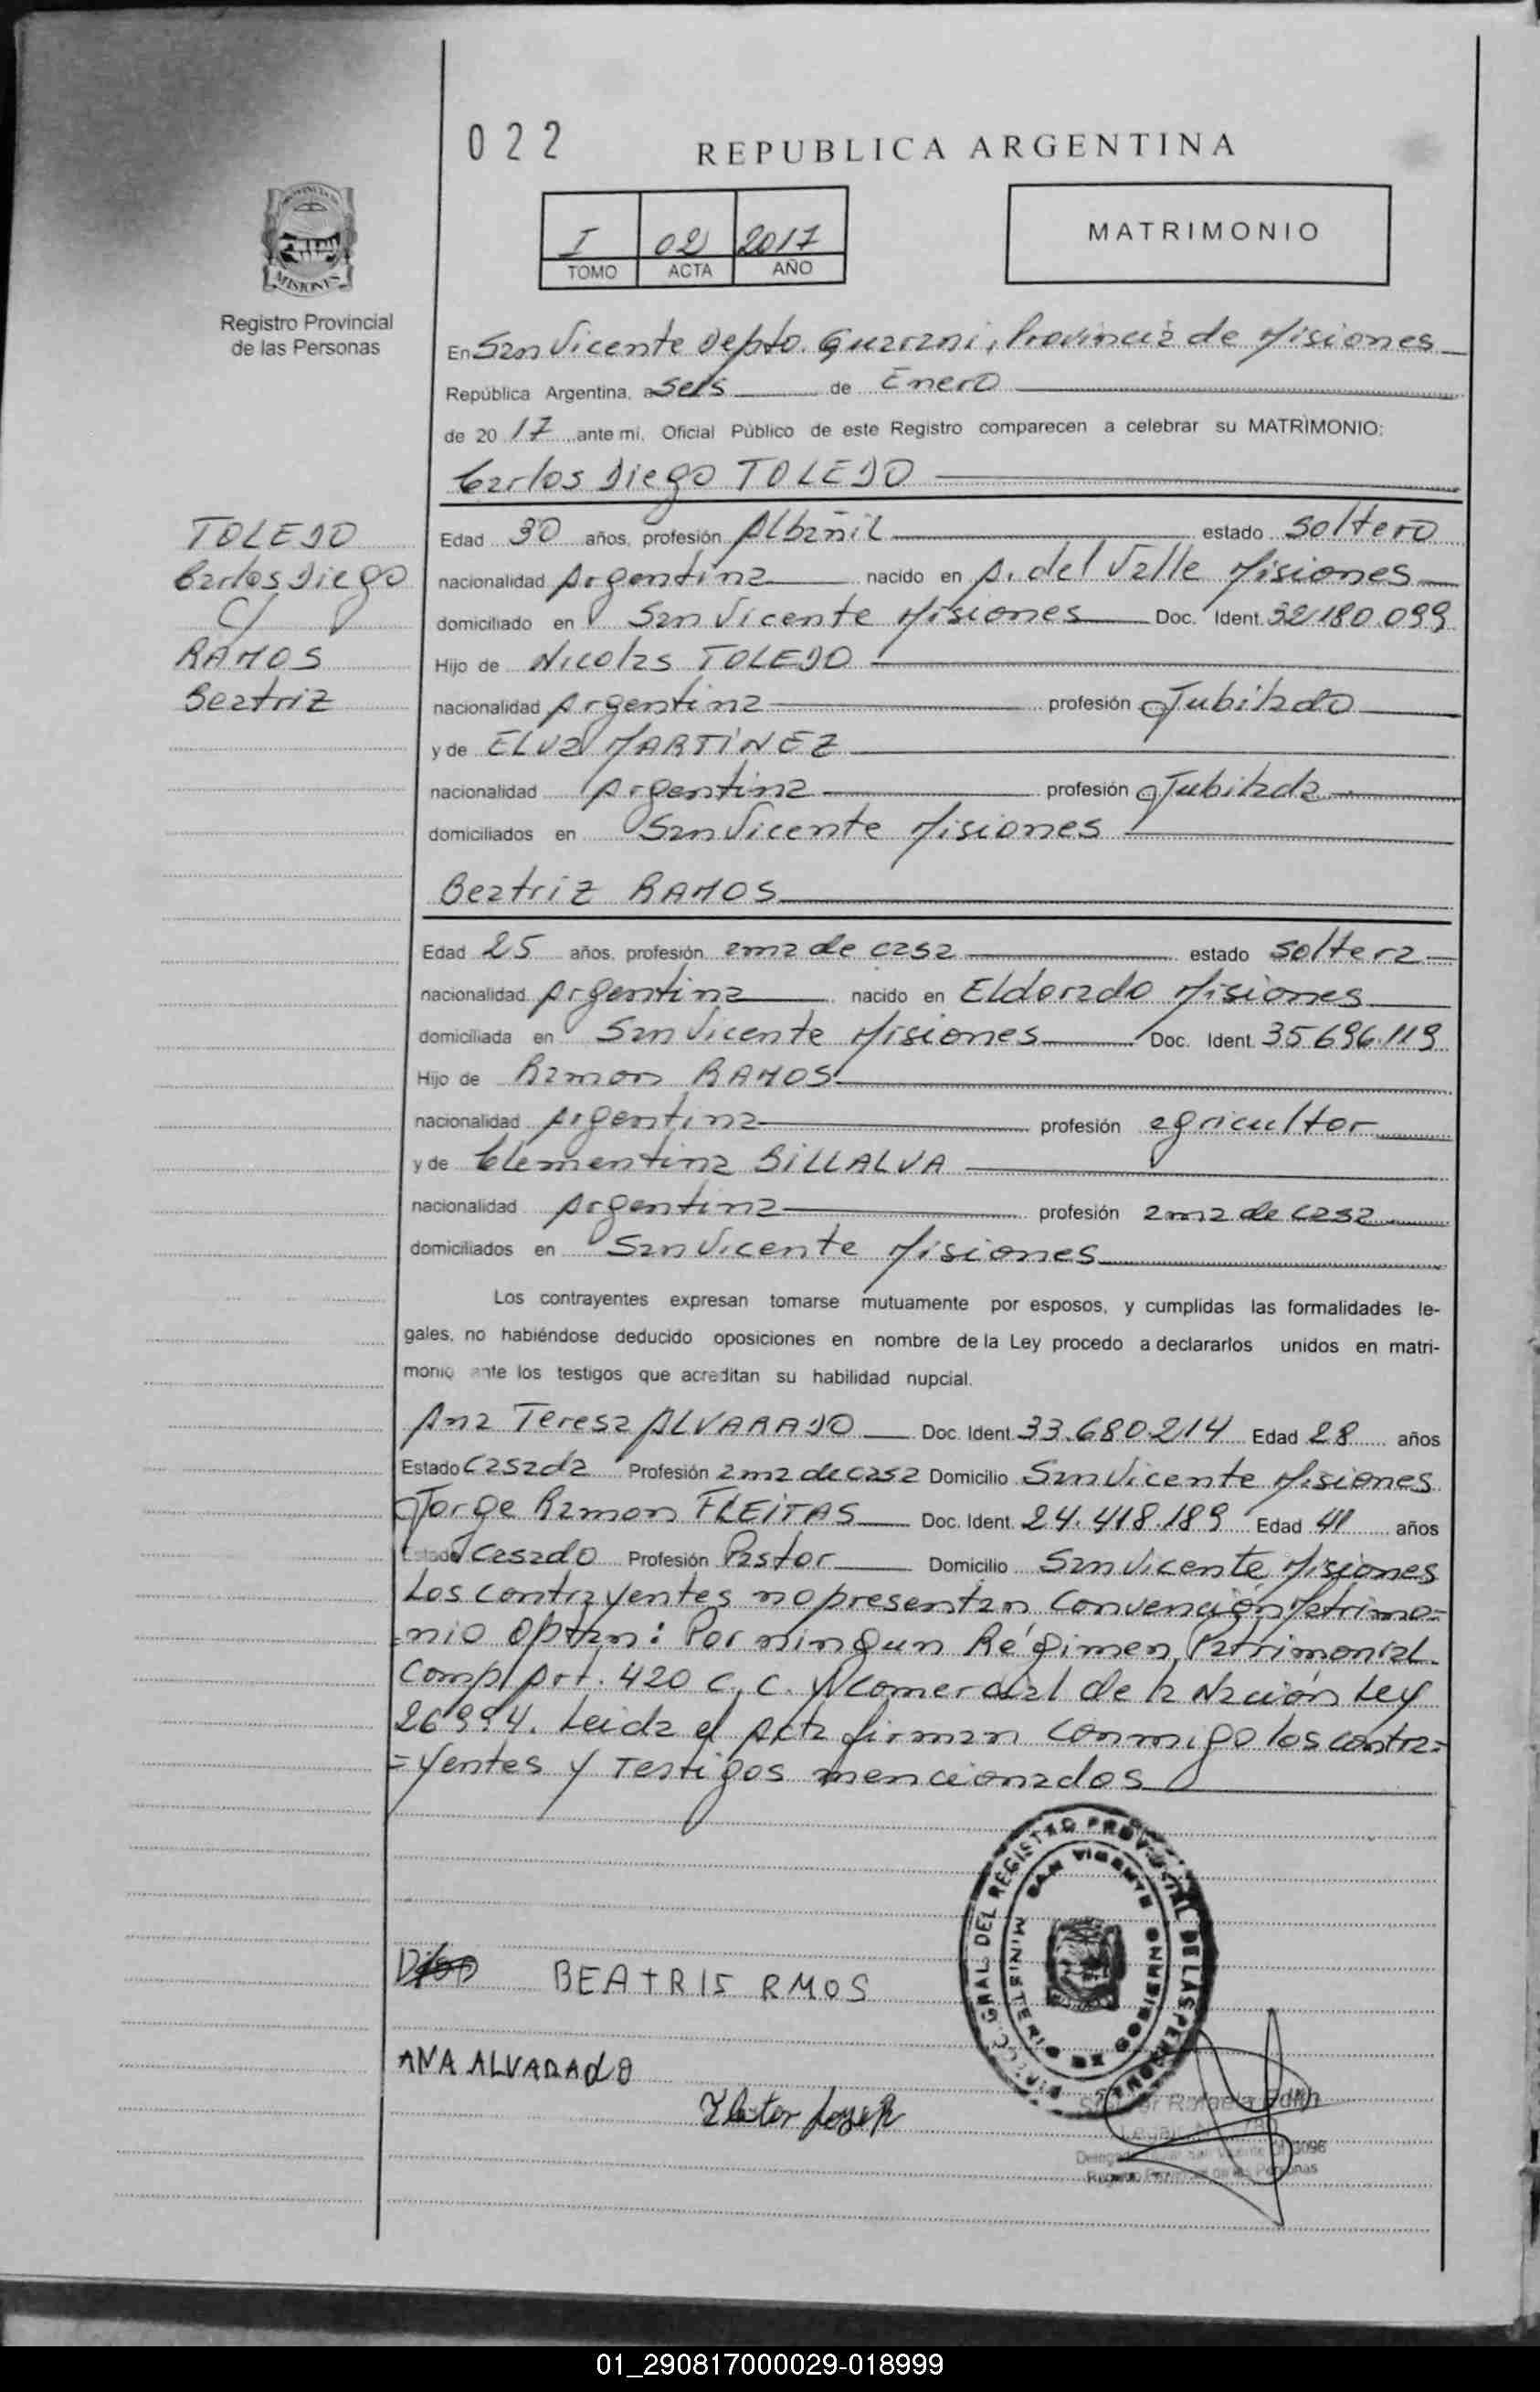 022
REPUBLICA ARGENTINA
I 02 2017
TOMO ACTA AÑO
MATRIMONIO
MISIONES
Registro Provincial
de las Personas
En San Vicente Depto. Guarani, Provincia de Misiones
República Argentina, a seis de Enero
de 2017 ante mi, Oficial Público de este Registro comparecen a celebrar su MATRIMONIO:
Carlos Diego TOLEDO
TOLEDO
Carlos Diego
C/
RAMOS
Beatriz
Edad 30 años, profesión Albañil estado soltero
nacionalidad Argentina nacido en A. del Valle Misiones
domiciliado en San Vicente Misiones Doc. Ident. 32.180.099
Hijo de Nicolas TOLEDO
nacionalidad Argentina profesión Jubilado
y de ELVA MARTiNEZ
nacionalidad Argentina profesión Jubilada
domiciliados en San Vicente Misiones
Beatriz RAMOS
Edad 25 años, profesión ama de casa estado soltera
nacionalidad Argentina nacido en Eldorado Misiones
domiciliada en San Vicente Misiones Doc. Ident. 35.696.119
Hijo de Ramon RAMOS
nacionalidad Argentina profesión agricultor
y de Clementina BiLLALVA
nacionalidad Argentina profesión ama de casa
domiciliados en San Vicente Misiones
Los contrayentes expresan tomarse mutuamente por esposos, y cumplidas las formalidades le-
gales, no habiéndose deducido oposiciones en nombre de la Ley procedo a declararlos unidos en matri-
monio ante los testigos que acreditan su habilidad nupcial.
Ana Teresa ALVARADO Doc. Ident. 33.680.214 Edad 28 años
Estado Casada Profesión ama de casa Domicilio San Vicente Misiones
Jorge Ramon FLEiTAS Doc. Ident. 24.418.189 Edad 41 años
Estado Casado Profesión Pastor Domicilio San Vicente Misiones
Los contrayentes no presentan Convención Matrimo=
=nio Optan: Por ningun Régimen Patrimonial.
Comp/Art. 420 C. C. y Comercial de la Nación Ley
26994. Leida el Acta firman conmigo los contra=
=yentes y Testigos mencionados
BEATRIS RMOS
ANA ALVARADO
DIRECC. GRAL DEL REGISTRO PROVINCIAL DE LAS PERSONAS
MINISTERIO DE GOBIERNO
SAN VICENTE
Registro Provincial de las Personas
01_290817000029-018999